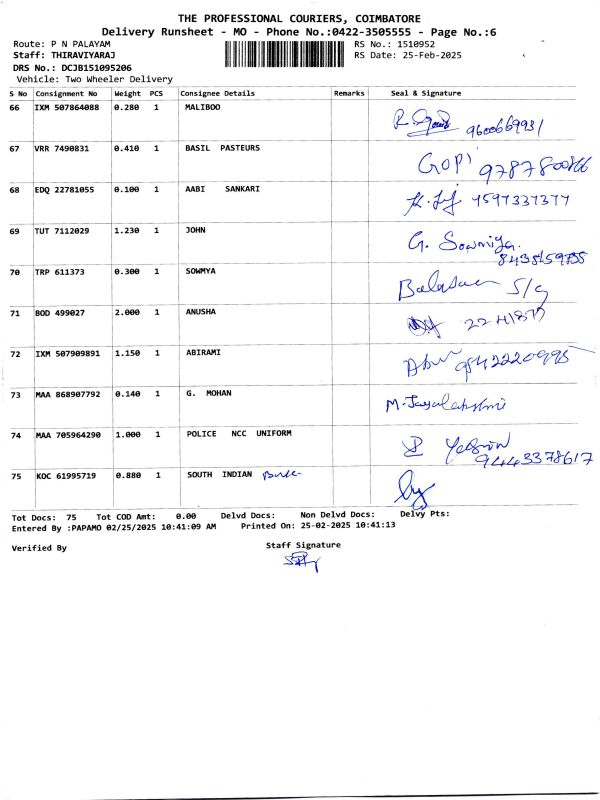 THE PROFESSIONAL COURIERS, COIMBATORE
Delivery Runsheet - MO - Phone No.:0422-3505555 - Page No.:6
Route: P N PALAYAM RS No.: 1510952
Staff: THIRAVIYARAJ RS Date: 25-Feb-2025
DRS No.: DCJB151095206
Vehicle: Two Wheeler Delivery
S No Consignment No Weight PCS Consignee Details Remarks Seal & Signature
66 IXM 507864088 0.280 1 MALIBOO
67 VRR 7490831 0.410 1 BASIL PASTEURS GOPI
68 EDQ 22781055 0.100 1 AABI SANKARI
69 TUT 7112029 1.230 1 JOHN G. Sowmiya.
70 TRP 611373 0.300 1 SOWMYA
71 BOD 499027 2.000 1 ANUSHA
72 IXM 507909891 1.150 1 ABIRAMI
73 MAA 868907792 0.140 1 G. MOHAN M. Jayalakshmi
74 MAA 705964290 1.000 1 POLICE NCC UNIFORM 9443378617
75 KOC 61995719 0.880 1 SOUTH INDIAN
Tot Docs: 75 Tot COD Amt: 0.00 Delvd Docs: Non Delvd Docs: Delvy Pts:
Entered By :PAPAMO 02/25/2025 10:41:09 AM Printed On: 25-02-2025 10:41:13
Verified By Staff Signature